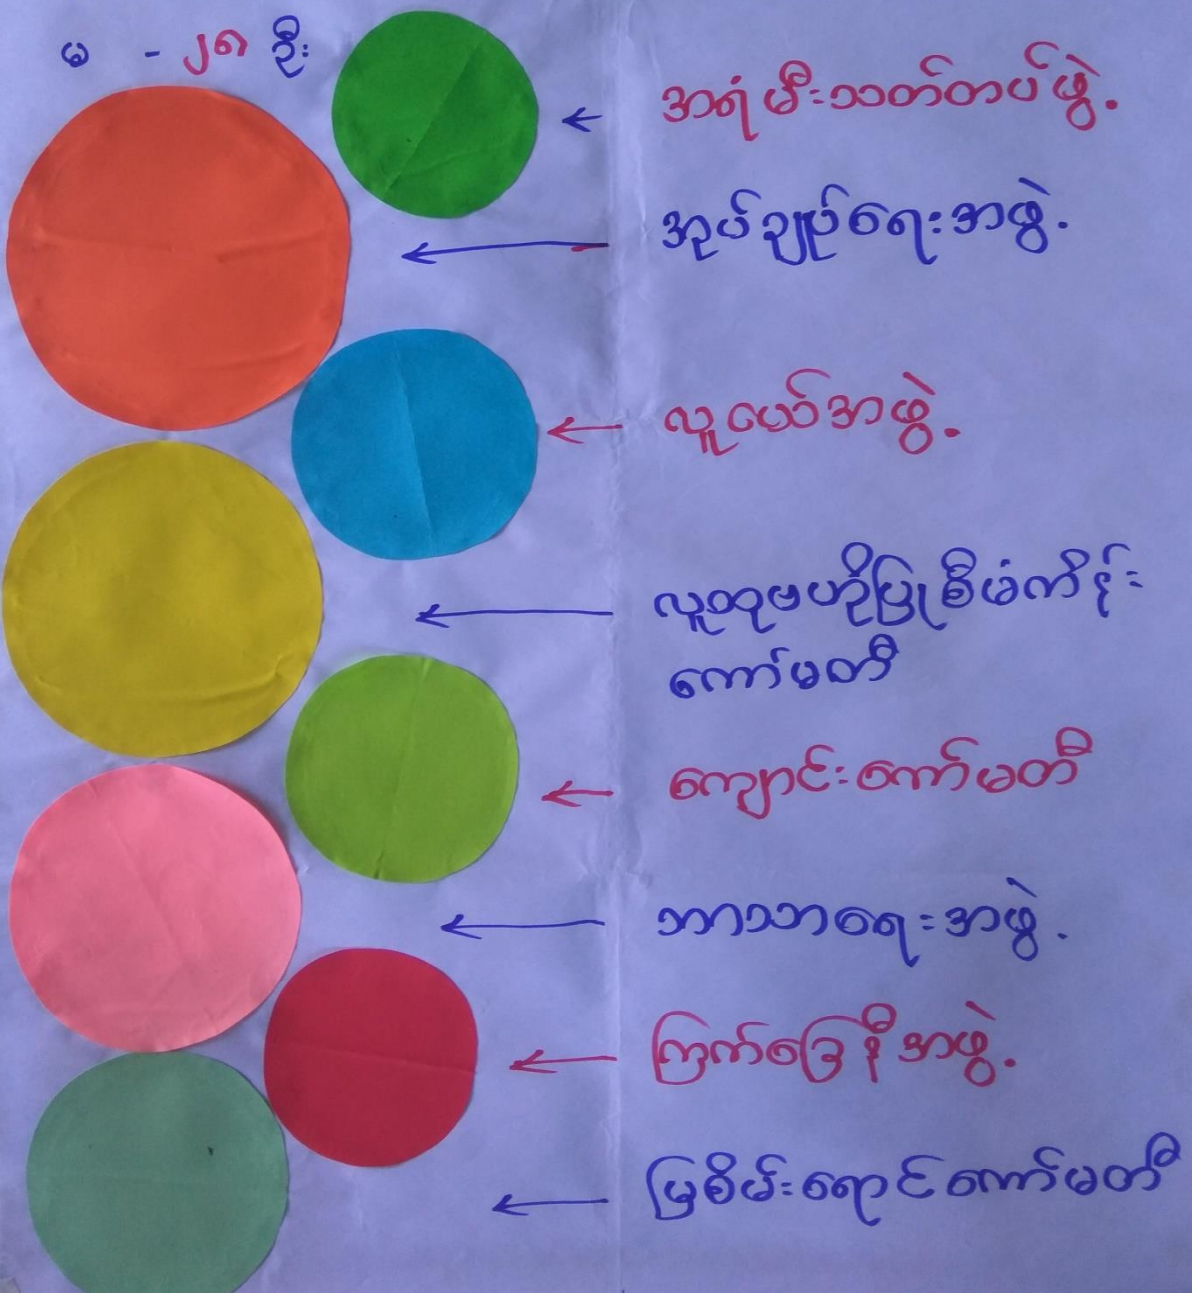 မ - ၂၈ ဦး
အရံမီးသတ်တပ်ဖွဲ့
အုပ်ချုပ်ရေးအဖွဲ့
လူငယ်အဖွဲ့
လူထုဗဟိုပြုစီမံကိန်း
ကော်မတီ
ကျောင်းကော်မတီ
ဘာသာရေးအဖွဲ့
ကြက်ခြေနီအဖွဲ့
မြစိမ်းရောင်ကော်မတီ